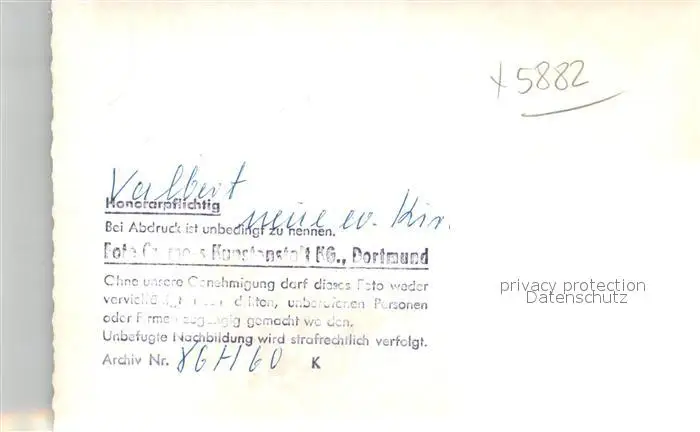 x 5882
Valbert
Honorarpflichtig
neue ev. Kir.
Bei Abdruck ist unbedingt zu nennen.
Foto Kunstanstalt KG., Dortmund
Ohne unsere Genehmigung darf dieses Foto weder
unberufenen Personen
oder Firmen zugängig gemacht werden.
Unbefugte Nachbildung wird strafrechtlich verfolgt.
Archiv Nr. K
privacy protection
Datenschutz